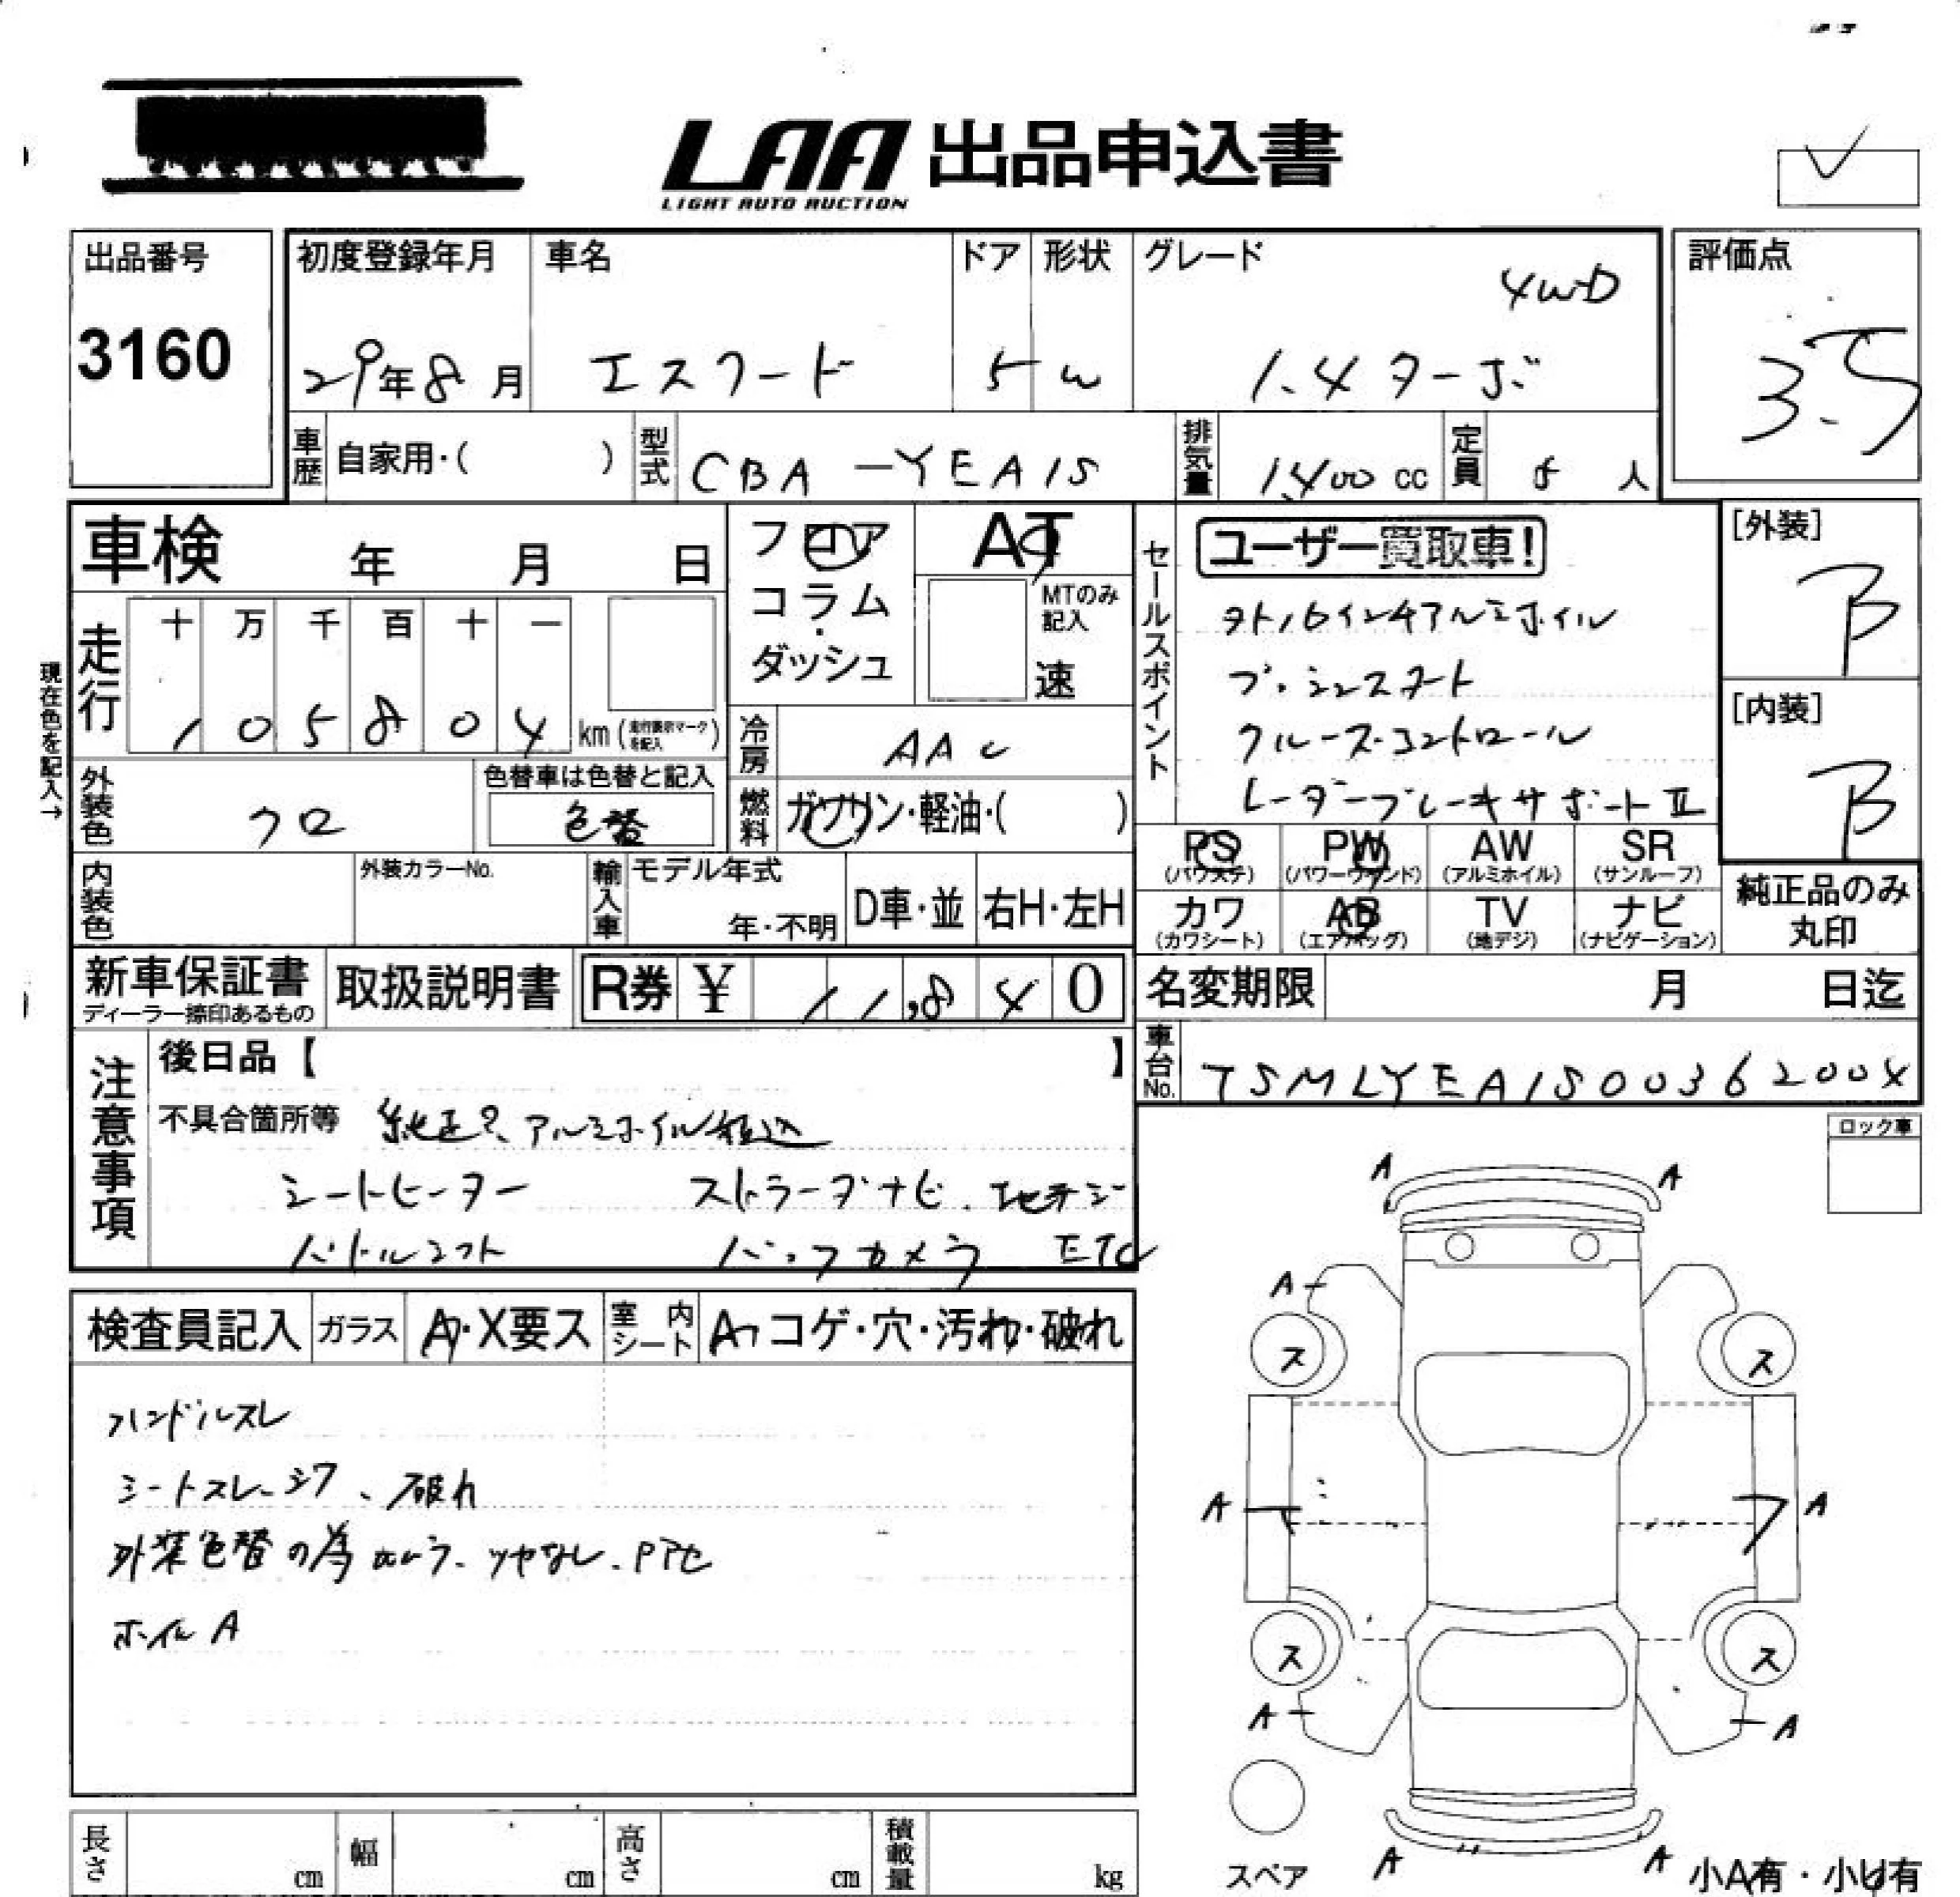 LAA 出品申込書
LIGHT AUTO AUCTION
出品番号
3160
初度登録年月
29年8月
車名
エスクード
ドア
5
形状
W
グレード
4WD
1.4ターボ
評価点
3.5
車歴
自家用・( )
型式
CBA-YEA1S
排気量
1,400 cc
定員
5 人
車検 年 月 日
走行
十 万 千 百 十 一
1 0 5 8 0 4 km (走行表示マークを記入)
現在色を記入→
外装色
クロ
色替車は色替と記入
色替
内装色
外装カラーNo.
フロア
コラム
・
ダッシュ
AT
MTのみ記入
速
冷房
AAC
燃料
ガソリン・軽油・( )
輸入車
モデル年式
年・不明
D車・並
右H・左H
セールスポイント
ユーザー買取車!
プッシュスタート
クルーズコントロール
レーダーブレーキサポートII
[外装]
B
[内装]
B
PS
(パワステ)
PW
(パワーウィンド)
AW
(アルミホイル)
SR
(サンルーフ)
カワ
(カワシート)
AB
(エアバッグ)
TV
(地デジ)
ナビ
(ナビゲーション)
純正品のみ
丸印
新車保証書
ディーラー捺印あるもの
取扱説明書
R券 ¥ 11,840
名変期限 月 日迄
車台No.
TSMLYEA1S00362004
注意事項
後日品【 】
不具合箇所等
アルミホイル
シートヒーター ストラーダナビ、地デジ
パドルシフト バックカメラ ETC
ロック車
検査員記入
ガラス
A・X要ス
室内シート
A・コゲ・穴・汚れ・破れ
ハンドルスレ
シートスレ、シワ、破れ
外装色替の為 ムラ、ツヤなし、
ホイルA
A A
A
ス ス
A A
ス ス
A A
スペア
A A
小A有・小U有
長さ cm
幅 cm
高さ cm
積載量 kg